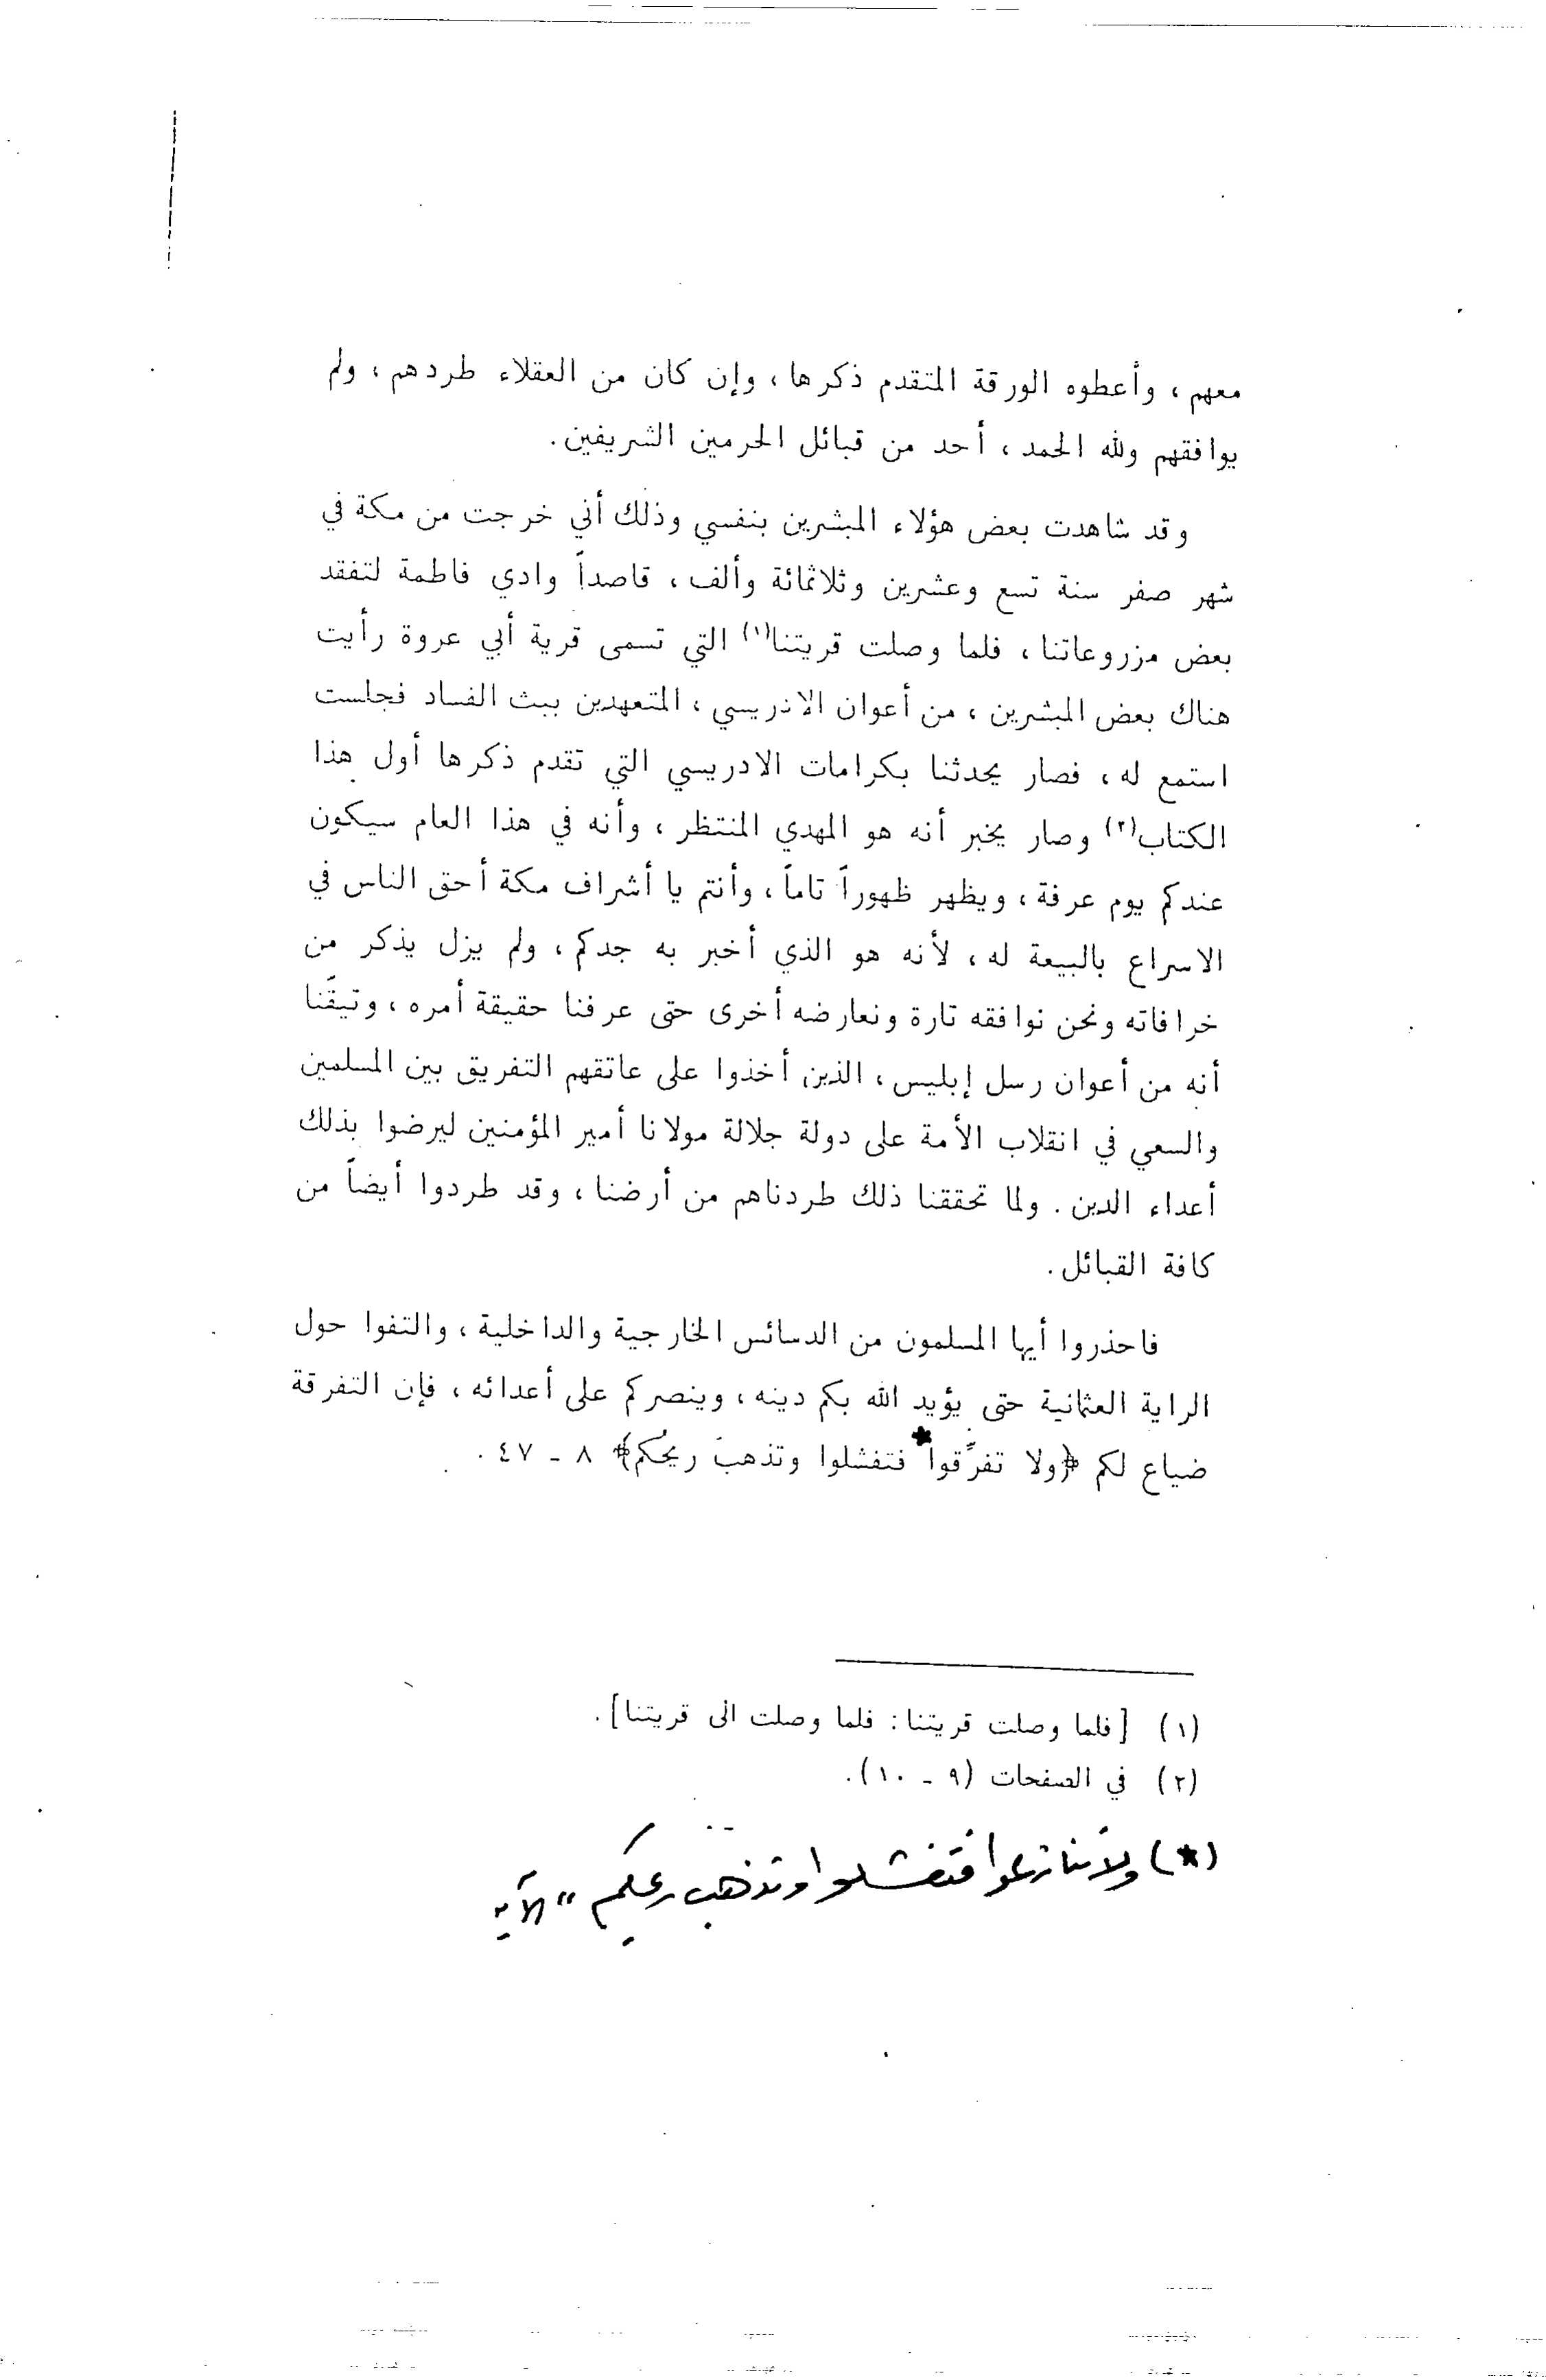 معهم ، وأعطوه الورقة المتقدم ذكرها ، وإن كان من العقلاء طردهم ، ولم
يوافقهم ولله الحمد ، أحد من قبائل الحرمين الشريفين .
وقد شاهدت بعض هؤلاء المبشرين بنفسي وذلك أني خرجت من مكة في
شهر صفر سنة تسع وعشرين وثلاثمائة وألف ، قاصداً وادي فاطمة لتفقد
بعض مزروعاتنا ، فلما وصلت قريتنا(١) التي تسمى قرية أبي عروة رأيت
هناك بعض المبشرين ، من أعوان الادريسي ، المتعهدين ببث الفساد فجلست
استمع له ، فصار يحدثنا بكرامات الادريسي التي تقدم ذكرها أول هذا
الكتاب(٢) وصار يخبر أنه هو المهدي المنتظر ، وأنه في هذا العام سيكون
عندكم يوم عرفة ، ويظهر ظهوراً تاماً ، وأنتم يا أشراف مكة أحق الناس في
الاسراع بالبيعة له ، لأنه هو الذي أخبر به جدكم ، ولم يزل يذكر من
خرافاته ونحن نوافقه تارة ونعارضه أخرى حتى عرفنا حقيقة أمره ، وتيقّنا
أنه من أعوان رسل إبليس ، الذين أخذوا على عاتقهم التفريق بين المسلمين
والسعي في انقلاب الأمة على دولة جلالة مولانا أمير المؤمنين ليرضوا بذلك
أعداء الدين . ولما تحققنا ذلك طردناهم من أرضنا ، وقد طردوا أيضاً من
كافة القبائل .
فاحذروا أيها المسلمون من الدسائس الخارجية والداخلية ، والتفوا حول
الراية العثمانية حتى يؤيد الله بكم دينه ، وينصركم على أعدائه ، فإن التفرقة
ضياع لكم ﴿ولا تفرَّقوا* فتفشلوا وتذهبَ ريحُكم﴾ ٨ - ٤٧ .
(١) [فلما وصلت قريتنا : فلما وصلت الى قريتنا] .
(٢) في الصفحات (٩ - ١٠) .
(*) ولا تنازعوا فتفشلوا وتذهب ريحكم " الآية